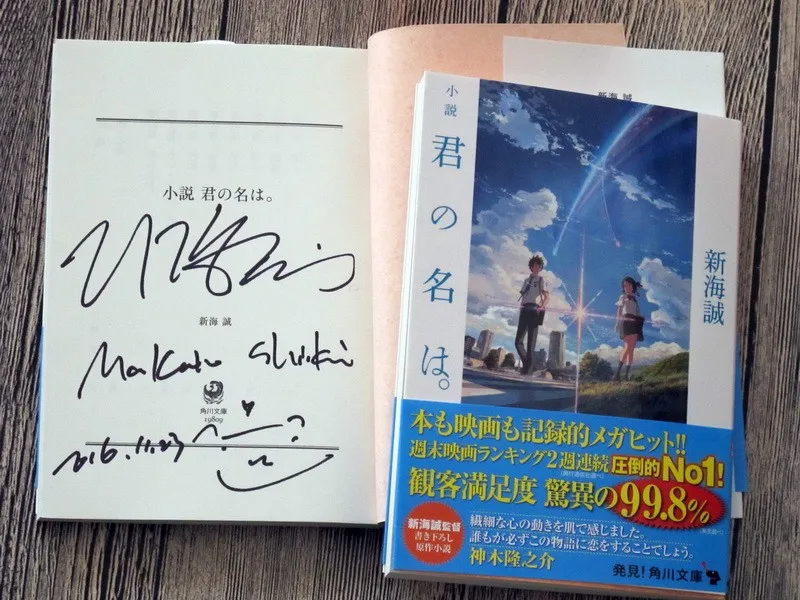 小説 君の名は。
新海 誠
Makoto Shinkai
角川文庫
19809
2016.11.23
新海 誠
小説
君の名は。
新海誠
本も映画も記録的メガヒット!!
週末映画ランキング2週連続 圧倒的No1!
観客満足度 驚異の99.8%
新海誠監督
書き下ろし
原作小説
繊細な心の動きを肌で感じました。
誰もが必ずこの物語に恋をすることでしょう。
神木隆之介
発見!角川文庫